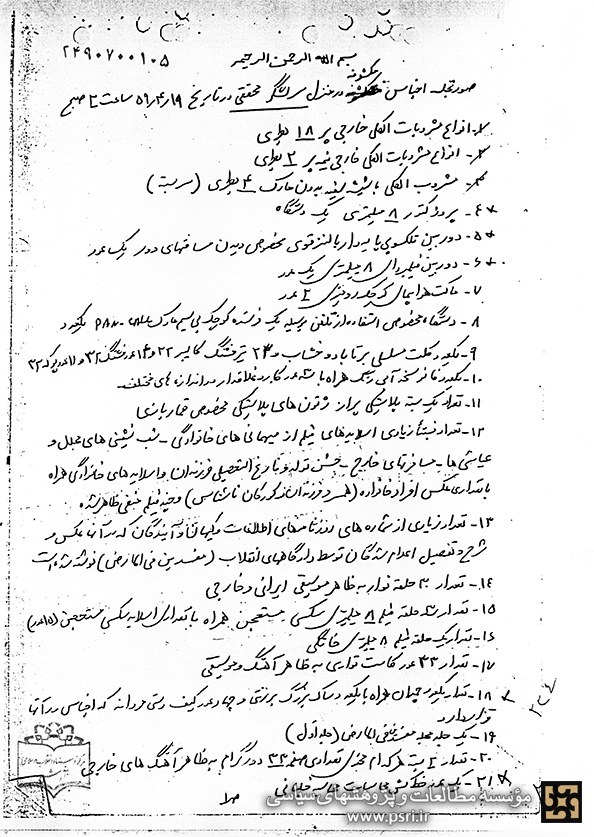 ۲۴۹۰۷۰۰۱۰۵
بسم الله الرحمن الرحیم
صورتجلسه اجناس مکشوفه در منزل سرلشگر محققی در تاریخ ۵۹/۴/۱۹ ساعت ۲ صبح
۱- انواع مشروبات الکلی خارجی پر ۱۸ بطری
۲- انواع مشروبات الکلی خارجی نیمه پر ۲ بطری
۳- مشروب الکلی با شیشه سفید بدون مارک ۴ بطری (سربسته)
۴- پروژکتور ۸ میلیمتری یک دستگاه
۵- دوربین تلکسوپی پایه دار با لنز قوی مخصوص دیدن مسافتهای دور یک عدد
۶- دوربین فیلمبرداری ۸ میلیمتری یک عدد
۷- ماکت هواپیمای کوچک رومیزی ۲ عدد
۸- دستگاه مخصوص استفاده از تلفن بوسیله یک فرستنده کوچک بی سیم مارک
۹- یکعدد کلت مسلسلی برتا با دو خشاب و ۲۳ تیر فشنگ کالیبر ۲۲ و ۱۴ عدد فشنگ ۳۲ و ۱۱ عدد پوکه ۳۲
۱۰- یکعدد همراه با سه عدد کارد غلافدار در اندازه های مختلف
۱۱- تعداد یک بسته پلاستیکی پر از ژتون های پلاستیکی مخصوص قمار بازی
۱۲- تعداد نسبتاً زیادی اسلایدهای فیلم از میهمانی های خانوادگی - شب نشینی های مجلل و
عیاشی ها - مسافرتهای خارج - جشن تولد و فارغ التحصیلی فرزندان و اسلایدهای خانوادگی همراه
با تعدادی عکس افراد خانواده (همسر و فرزندان مذکور کان ناشناس) و چند فیلم منفی ظاهر شده
۱۳- تعداد زیادی از شماره های روزنامه های اطلاعات و کیهان و آیندگان که در آنها عکس و
شرح و تفصیل اعدام شدگان توسط دادگاههای انقلاب (مفسدین فی الارض) نوشته شده است
۱۴- تعداد ۳۰ حلقه نوار به ظاهر موسیقی ایرانی و خارجی
۱۵- تعداد سه حلقه فیلم ۸ میلیمتری سکسی مستهجن همراه با تعدادی اسلاید سکسی مستهجن (۱۵ عدد)
۱۶- تعداد یک حلقه فیلم ۸ میلیمتری خانگی
۱۷- تعداد ۳۳ عدد کاست نواری به ظاهر آهنگ و موسیقی
۱۸- تعداد یکعدد چمدان همراه با یکعدد ساک بزرگ برزنتی و چهار عدد کیف دستی مردانه که اجناسی در آنها
قرار دارد
۱۹- یک جلد مفسدین فی الارض (جلد اول)
۲۰- تعداد ۲ بسته هر کدام محتوی تعدادی صفحه ۳۳ دور گرام به ظاهر آهنگ های خارجی
۲۱- یک عدد خط کش محاسبات
مؤسسهٔ مطالعات و پژوهشهای سیاسی
www.psri.ir